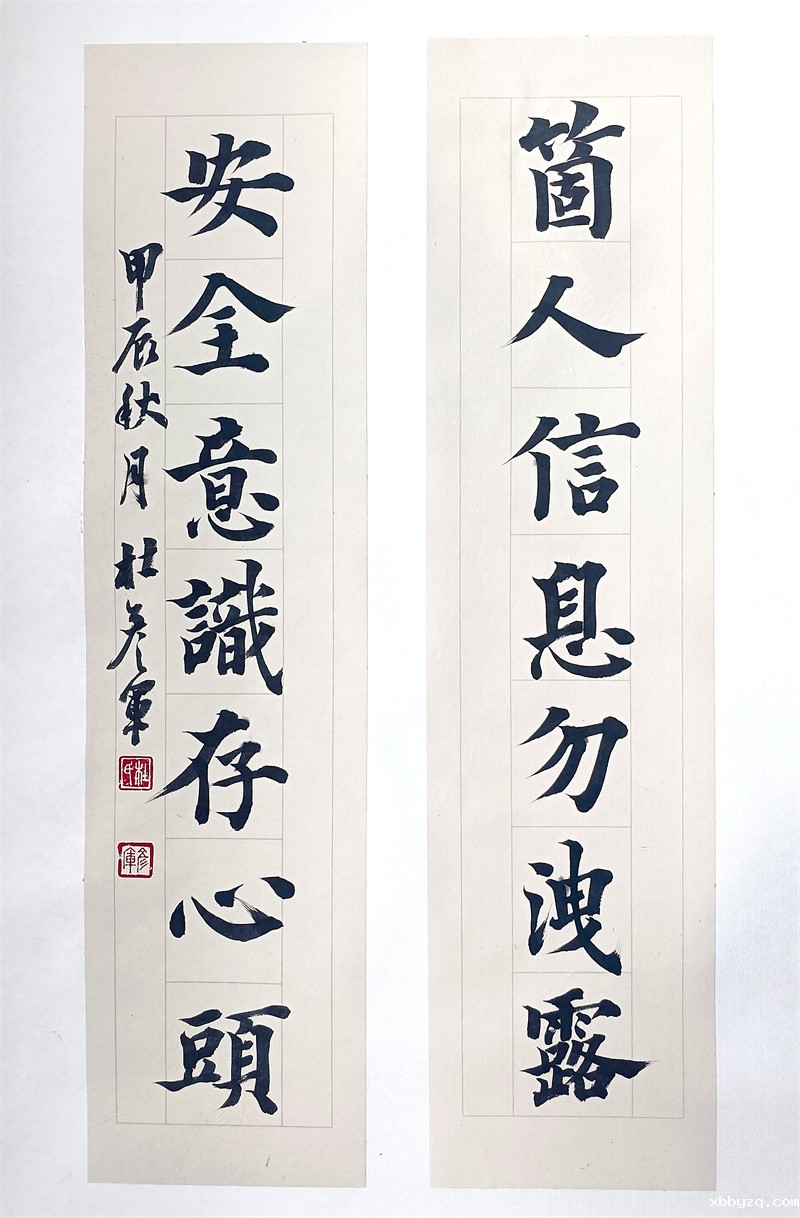 箇人信息勿洩露
安全意識存心頭
甲辰秋月 杜彦軍
杜氏
彦軍
xbbyzq.com